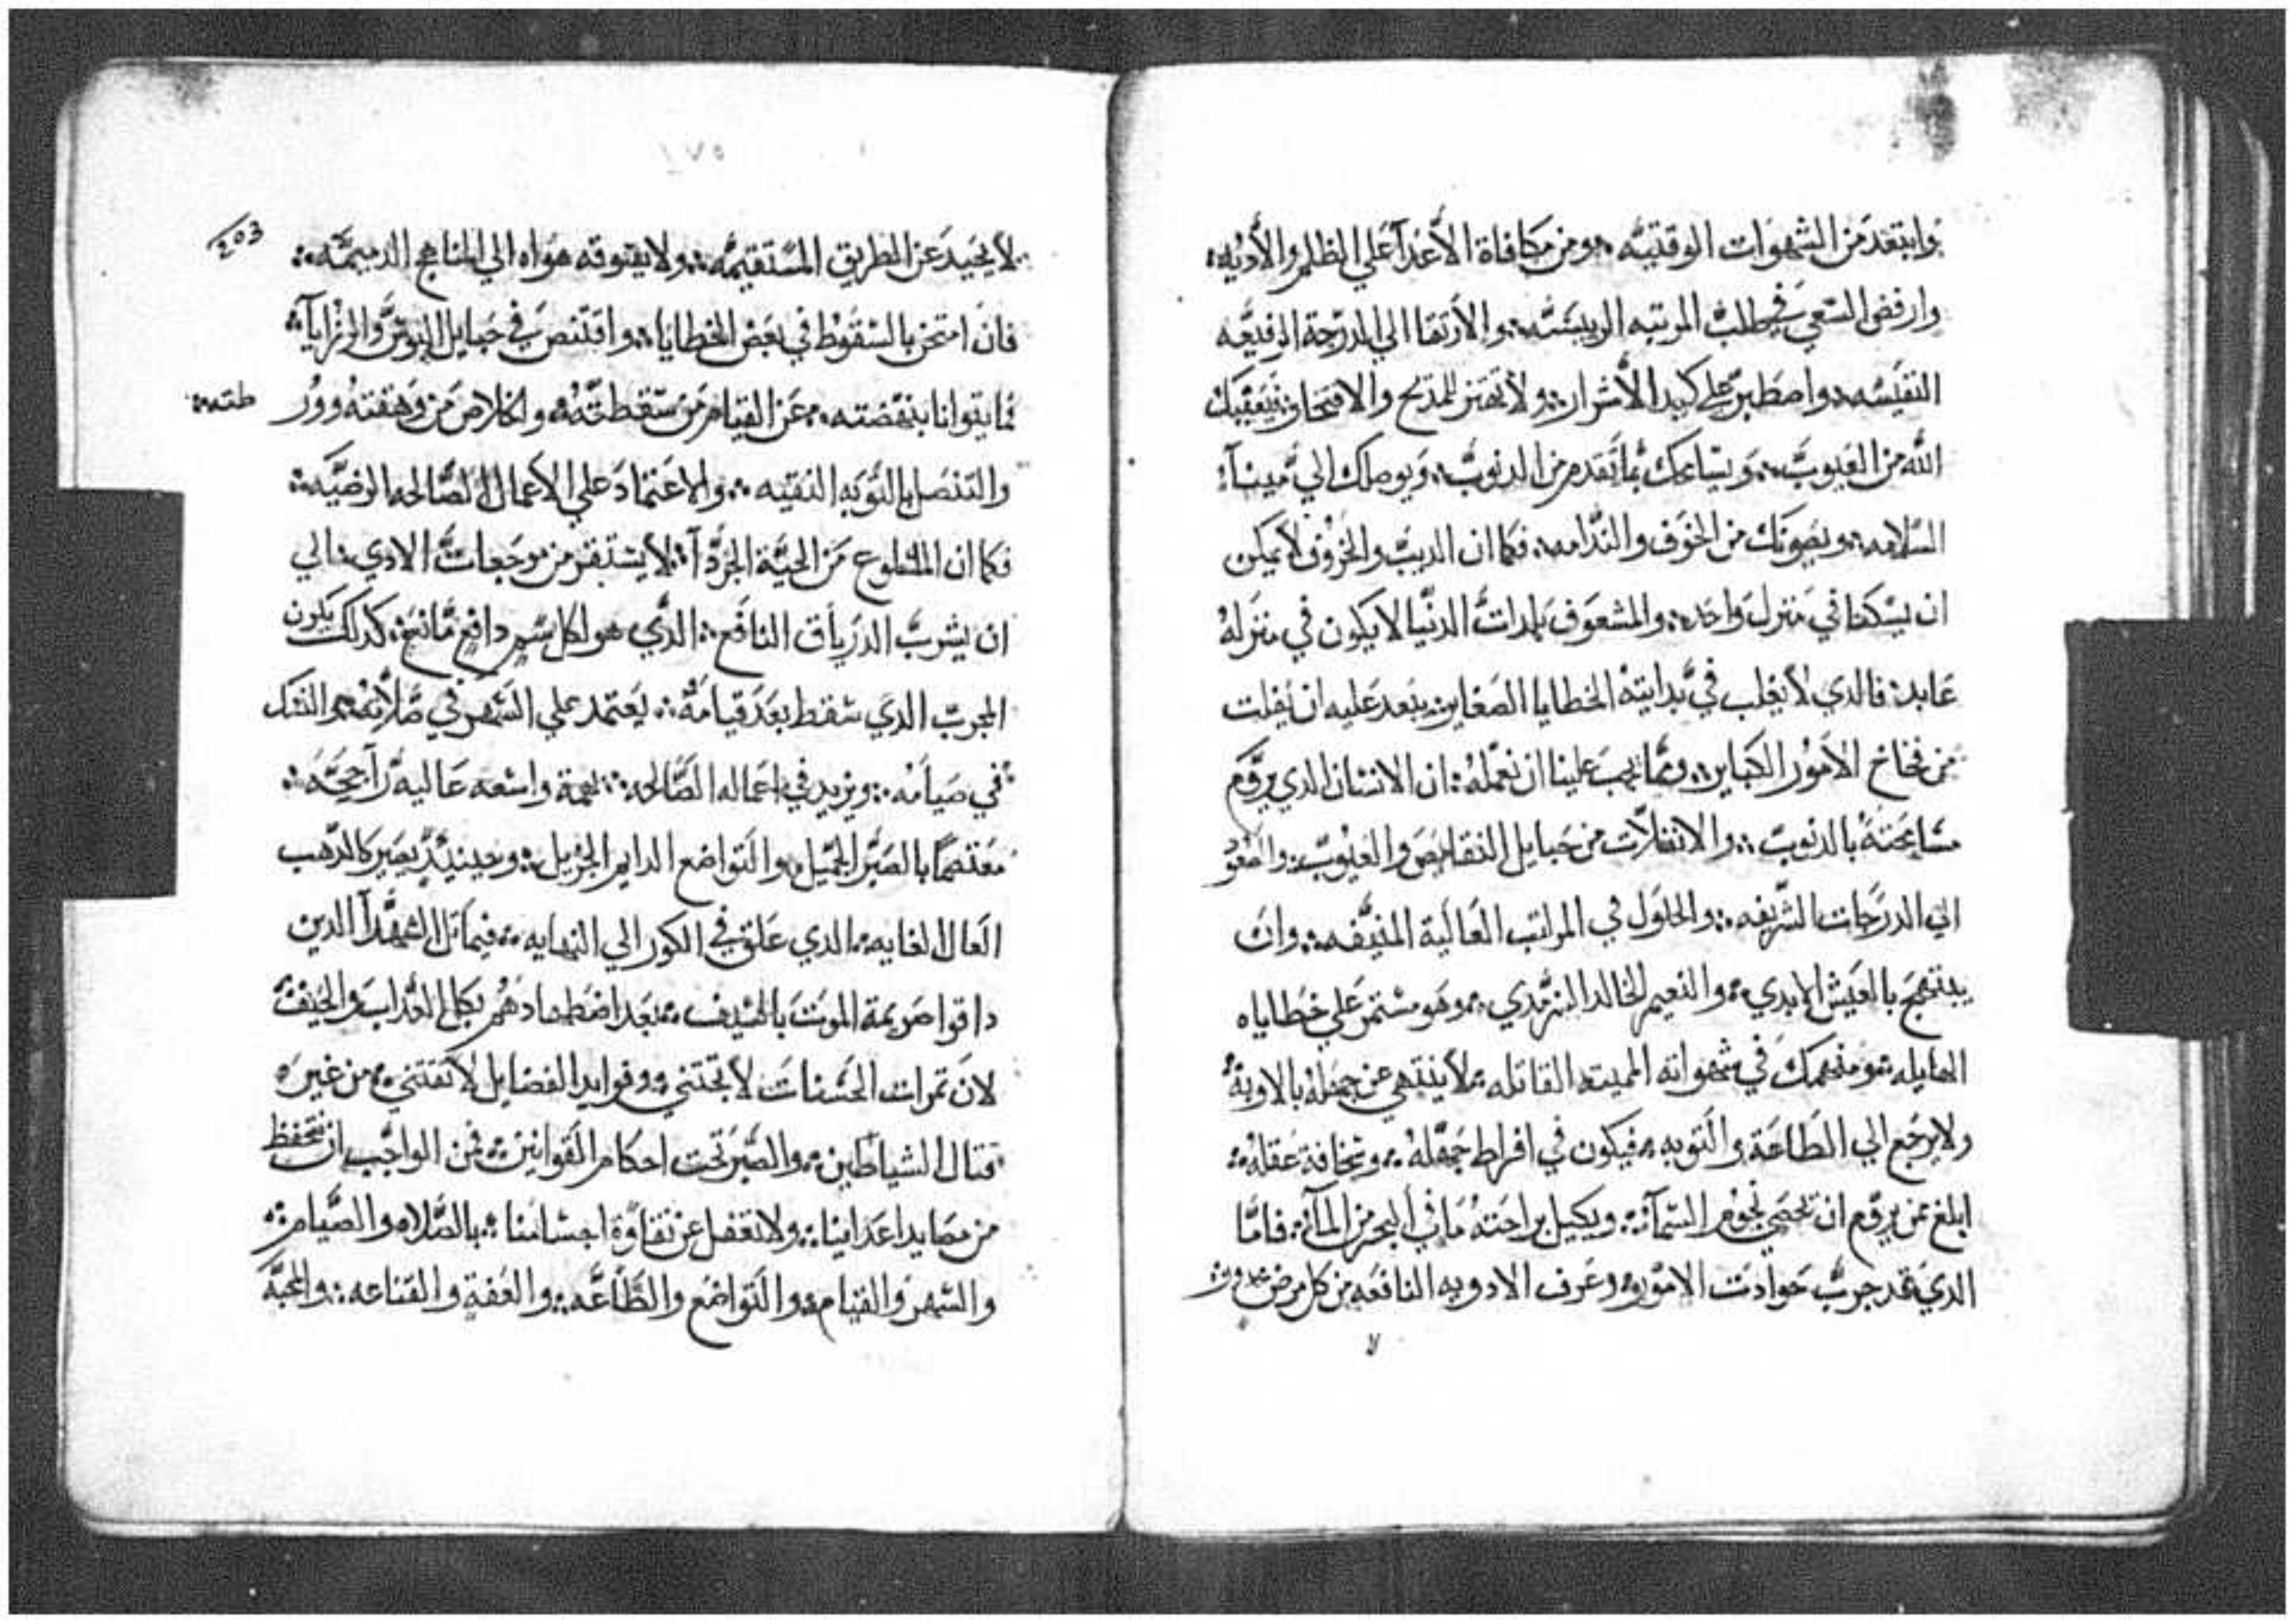 وابتعد من الشهوات الوقتيه ومن مكافاة الأعدآ علي الظلم والأديه
وارفض السعي في طلب المرتبه الرييسيه والأرتقا الي الدرجة الرفيعه
النفيسه واصطبر علي كيد الأشرار ولا تغتر للمديح والافتخار
الله من العيوب ويسامحك بما تقدم من الدنوب ويوصلك الي مينآء
السلامه ويصونك من الخوف والندامه فكما ان الديب والخروف لا يمكن
ان يسكنا في منزل واحد والمشعوف بلدات الدنيا لا يكون في منزله
عابد فالدي لا يغلب في بدايته الخطايا الصغاير يبعد عليه ان يفلت
من فخاخ الأمور الكباير ومما يجب علينا ان نعمله ان الانسان الدي يروم
مسامحته بالدنوب والانفلات من حبايل النقايص والعيوب والصعود
الي الدرجات الشريفه والحلول في المراتب العالية المنيفه وان
يبتهج بالعيش الابدي والنعيم الخالد السرمدي وهو مستمر علي خطاياه
الهايله ومنهمك في شهواته المميته القاتله لا ينتهي عن جهله بالاوبة
ولا يرجع الي الطاعة والتوبه فيكون في افراط جهله وسخافة عقله
ابلغ ممن يروم ان تحصي نجوم السمآء ويكيل براحته ما في البحر من المآء فاما
الدي قد جرب حوادت الامور وعرف الادويه النافعه من كل مرض
لا
١٧٥
٤٥٣
لا يحيد عن الطريق المستقيمه ولا يقوقه هواه الي المناهج الدميمه
فان امتحن بالسقوط في بعض الخطايا واقتنص في حبايل البوس والرزايآ
فما يتوانا بنهضته عن القيام من سقطته والخلاص من وهفته وور طته
والتنصل بالتوبه النقيه والاعتماد علي الاعمال الصالحه الرضيه
فكما ان الملسوع من الحية الجردآ لا يستقر من وجعات الادي الي
ان يشرب الدرياق النافع الدي هو لكل سم دافع مانع كدلك يكون
المجرب الدي سقط بعد قيامه يعتمد علي السهر في صلاته والنسك
في صيامه ويزيد في اعماله الصالحه بهمة واسعه عاليه راجحه
معتصماً بالصبر الجميل والتواضع الدايم الجزيل وحينيد يصير كالدهب
العال الغايه الدي علق في الكور الي النهايه فيماتل الشهدآ الدين
داقوا صريمة الموت بالسيف بعد اضطهادهم بكل العداب والحيف
لان تمرات الحسنات لا تجتني وفوايد الفضايل لا تقتني من غير
قتال الشياطين والصبر تحت احكام القوانين فمن الواجب ان نتحفظ
من مصايد اعداينا ولا نغفل عن نقاوة اجسامنا بالصلاه والصيام
والسهر والقيام والتواضع والطاعه والعفة والقناعه والمحبه